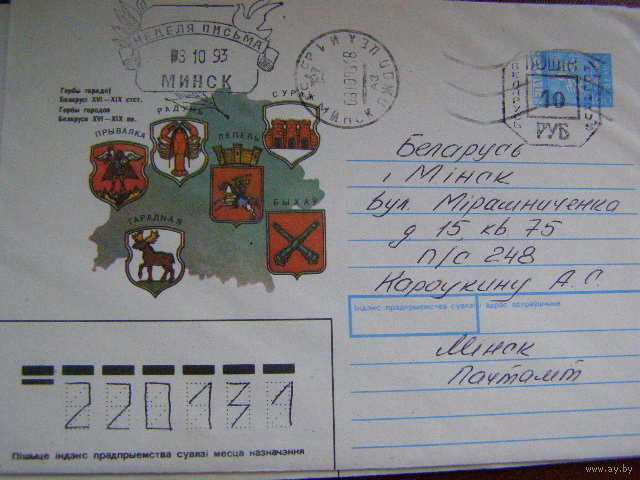 НЕДЕЛЯ ПИСЬМА
08 10 93
МИНСК
МИНСК
ПОШТА
10
РУБ
Гербы гарадоў
Беларусі XVI – XIX стст.
Гербы городов
Беларуси XVI – XIX вв.
ПРЫВАЛКА
РАДУНЬ
ЛЕПЕЛЬ
СУРАЖ
ГАРАДНАЯ
БЫХАЎ
Беларусь
г Мінск
вул. Мірашниченка
д 15 кв 75
п/с 248
Кароукину А. С.
Індэкс прадпрыемства сувязі і адрас адпраўшчыка
Минск
Почтамт
220131
Пішыце індэкс прадпрыемства сувязі месца назначэння
www.ay.by